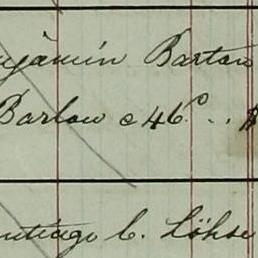 njamin Barton
Barlow c 46º . . $
ntiago C. Löhse